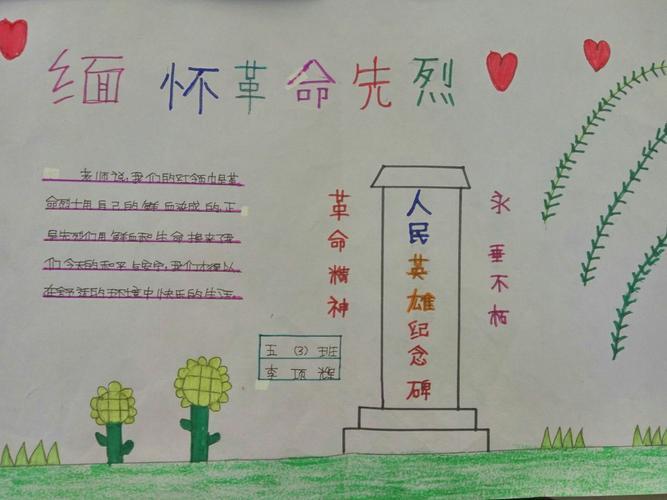 缅怀革命先烈
老师说,我们的红领巾是革
命烈士用自己的鲜血染成的,正
是先烈们用鲜血和生命换来了我
们今天的和平与安宁,我们才得以
在舒适的环境中快乐的生活。
革命精神
人民英雄纪念碑
永垂不朽
五(3)班
李项辉